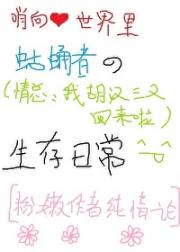 哨向❤世界里
蛄蛹者の
(情总:我胡汉三又
回来啦)
生存日常
[粉嫩作者纯情论]